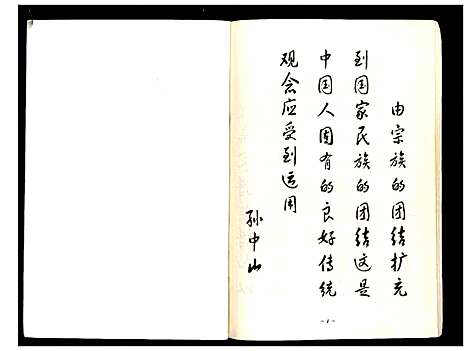 由宗族的团结扩充
到国家民族的团结这是
中国人固有的良好传统
观念应受到运用
孙中山
-1-